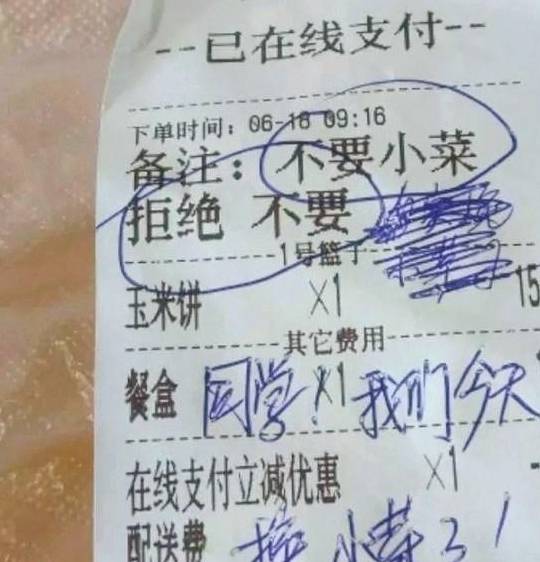 --已在线支付--
下单时间：06-18 09:16
备注：不要小菜
拒绝 不要
1号篮子
玉米饼 X1 15
其它费用
餐盒 X1
同学！我们今天
在线支付立减优惠 X1 -
配送费
换小菜了！